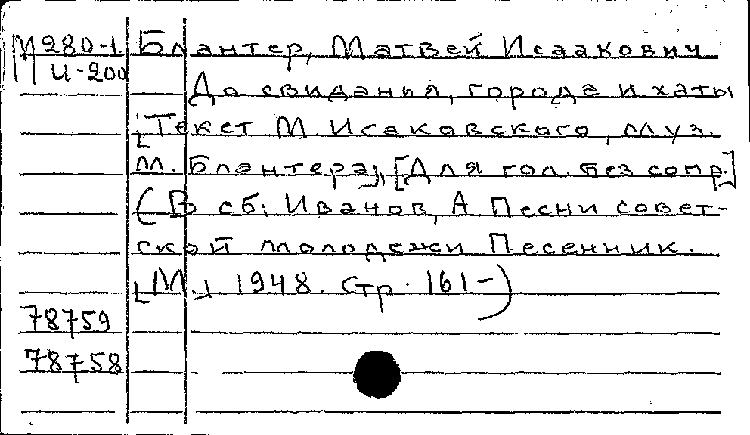 М280-1 Блантер, Матвей Исаакович
И-200
До свидания, города и хаты
[Текст М. Исаковского, муз.
М. Блантера], [Для гол. без сопр.]
(В сб: Иванов, А Песни совет-
ской молодежи Песенник.
[М.] 1948. Стр. 161-)
78759
78758